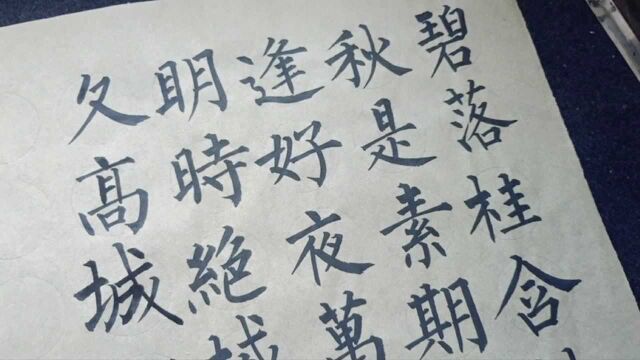 碧落桂含
秋是素期
逢好夜萬
明時絕域
久高城